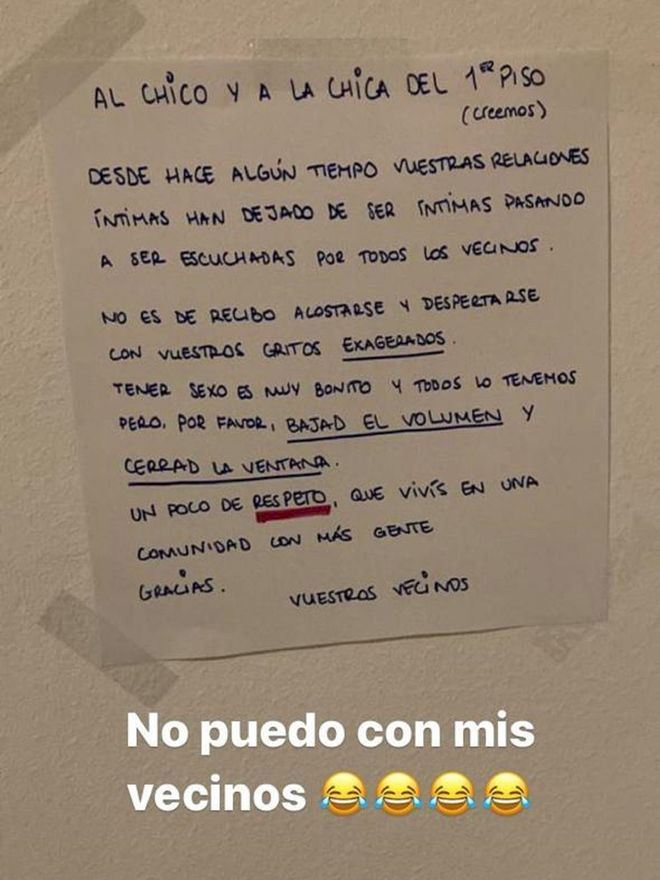 AL CHICO Y A LA CHICA DEL 1ER PISO
(creemos)
DESDE HACE ALGÚN TIEMPO VUESTRAS RELACIONES
ÍNTIMAS HAN DEJADO DE SER ÍNTIMAS PASANDO
A SER ESCUCHADAS POR TODOS LOS VECINOS.
NO ES DE RECIBO ACOSTARSE Y DESPERTARSE
CON VUESTROS GRITOS EXAGERADOS.
TENER SEXO ES MUY BONITO Y TODOS LO TENEMOS
PERO, POR FAVOR, BAJAD EL VOLUMEN Y
CERRAD LA VENTANA.
UN POCO DE RESPETO, QUE VIVÍS EN UNA
COMUNIDAD CON MÁS GENTE
GRACIAS.
VUESTROS VECINOS
No puedo con mis
vecinos 😂😂😂😂